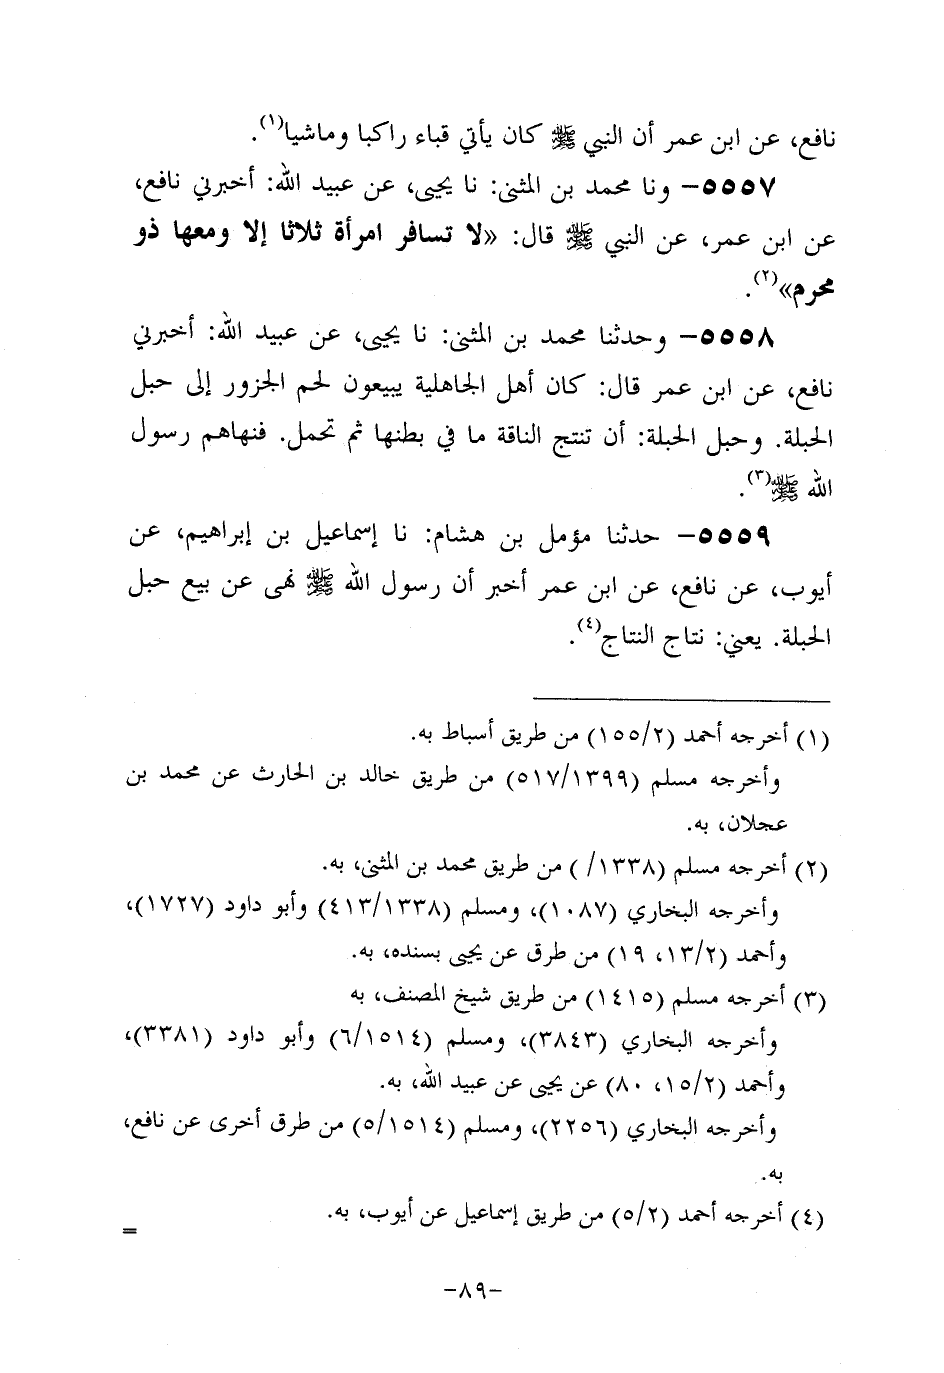 نافع، عن ابن عمر أن النبي ﷺ كان يأتي قباء راكبا وماشيا(١).
٥٥٥٧– ونا محمد بن المثنى: نا يحيى، عن عبيد الله: أخبرني نافع،
عن ابن عمر، عن النبي ﷺ قال: «لا تسافر امرأة ثلاثا إلا ومعها ذو
محرم»(٢).
٥٥٥٨– وحدثنا محمد بن المثنى: نا يحيى، عن عبيد الله: أخبرني
نافع، عن ابن عمر قال: كان أهل الجاهلية يبيعون لحم الجزور إلى حبل
الحبلة. وحبل الحبلة: أن تنتج الناقة ما في بطنها ثم تحمل. فنهاهم رسول
الله ﷺ(٣).
٥٥٥٩– حدثنا مؤمل بن هشام: نا إسماعيل بن إبراهيم، عن
أيوب، عن نافع، عن ابن عمر أخبر أن رسول الله ﷺ نهى عن بيع حبل
الحبلة. يعني: نتاج النتاج(٤).
(١) أخرجه أحمد (١٥٥/٢) من طريق أسباط به.
وأخرجه مسلم (٥١٧/١٣٩٩) من طريق خالد بن الحارث عن محمد بن
عجلان، به.
(٢) أخرجه مسلم (١٣٣٨/ ) من طريق محمد بن المثنى، به.
وأخرجه البخاري (١٠٨٧)، ومسلم (٤١٣/١٣٣٨) وأبو داود (١٧٢٧)،
وأحمد (١٣/٢، ١٩) من طرق عن يحيى بسنده، به.
(٣) أخرجه مسلم (١٤١٥) من طريق شيخ المصنف، به
وأخرجه البخاري (٣٨٤٣)، ومسلم (٦/١٥١٤) وأبو داود (٣٣٨١)،
وأحمد (١٥/٢، ٨٠) عن يحيى عن عبيد الله، به.
وأخرجه البخاري (٢٢٥٦)، ومسلم (٥/١٥١٤) من طرق أخرى عن نافع،
به.
(٤) أخرجه أحمد (٥/٢) من طريق إسماعيل عن أيوب، به.
=
–٨٩–